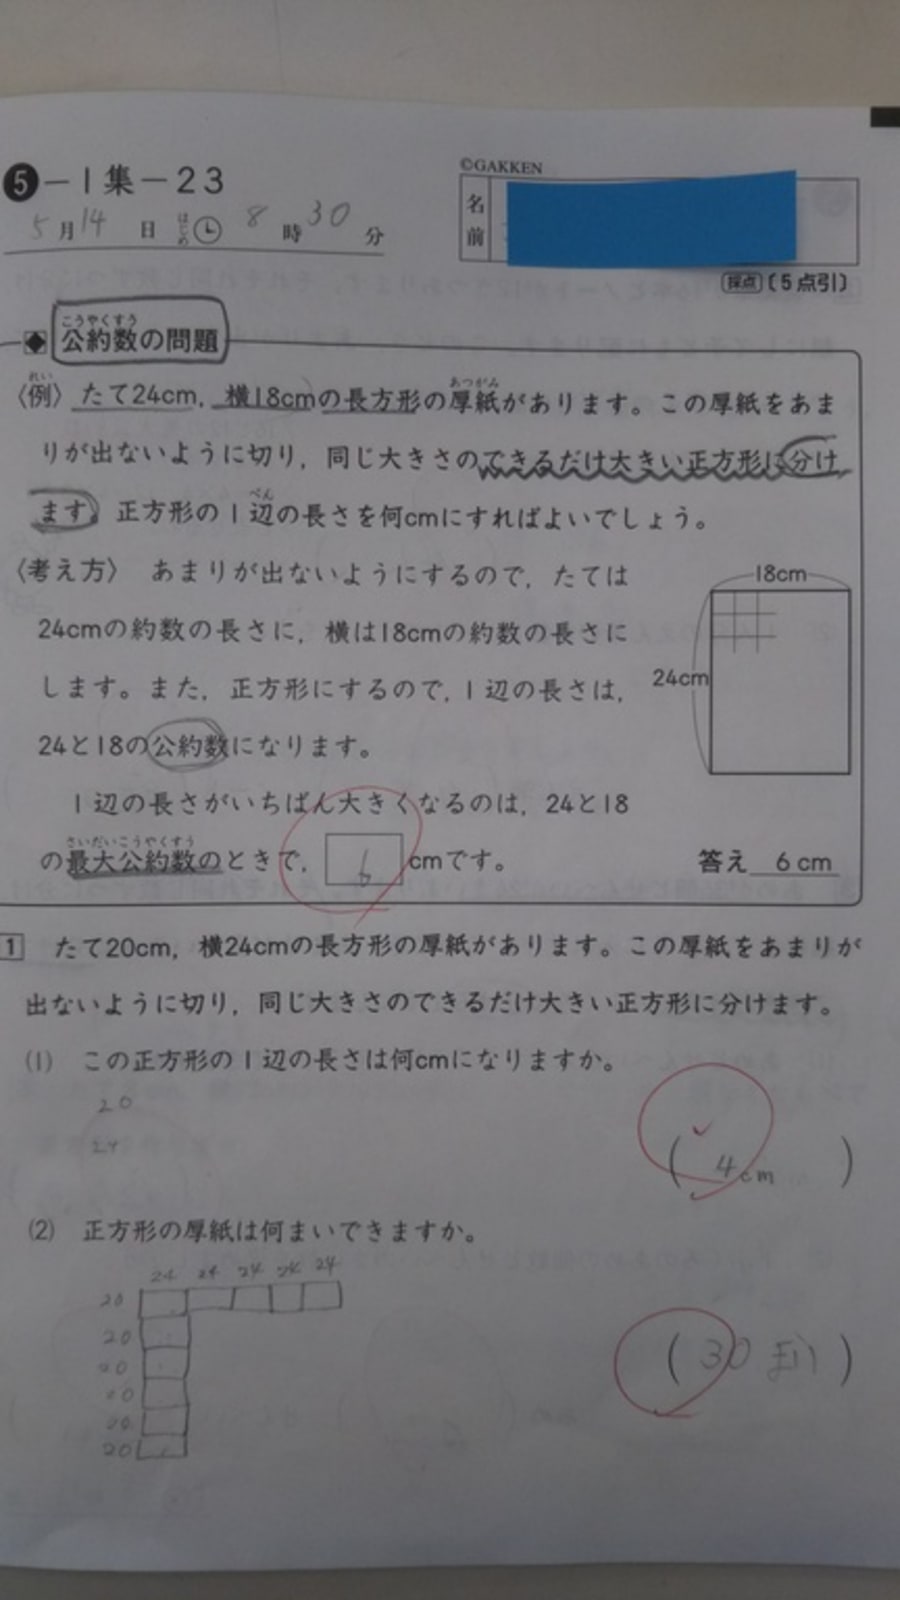 5-1集-23
©GAKKEN
5月14日 はじめ 8時30分
名前
採点〔5点引〕
◆ 公約数の問題
こうやくすう
〈例〉たて24cm，横18cmの長方形の厚紙があります。この厚紙をあま
れい あつがみ
りが出ないように切り，同じ大きさのできるだけ大きい正方形に分け
ます。正方形の1辺の長さを何cmにすればよいでしょう。
べん
〈考え方〉 あまりが出ないようにするので，たては
24cmの約数の長さに，横は18cmの約数の長さに
します。また，正方形にするので，1辺の長さは，
24と18の公約数になります。
1辺の長さがいちばん大きくなるのは，24と18
の最大公約数のときで，6cmです。
さいだいこうやくすう
18cm
24cm
答え 6cm
1 たて20cm，横24cmの長方形の厚紙があります。この厚紙をあまりが
出ないように切り，同じ大きさのできるだけ大きい正方形に分けます。
(1) この正方形の1辺の長さは何cmになりますか。
20
24
(4cm)
(2) 正方形の厚紙は何まいできますか。
24 24 24 24 24
20
20
20
20
20
20
(30まい)